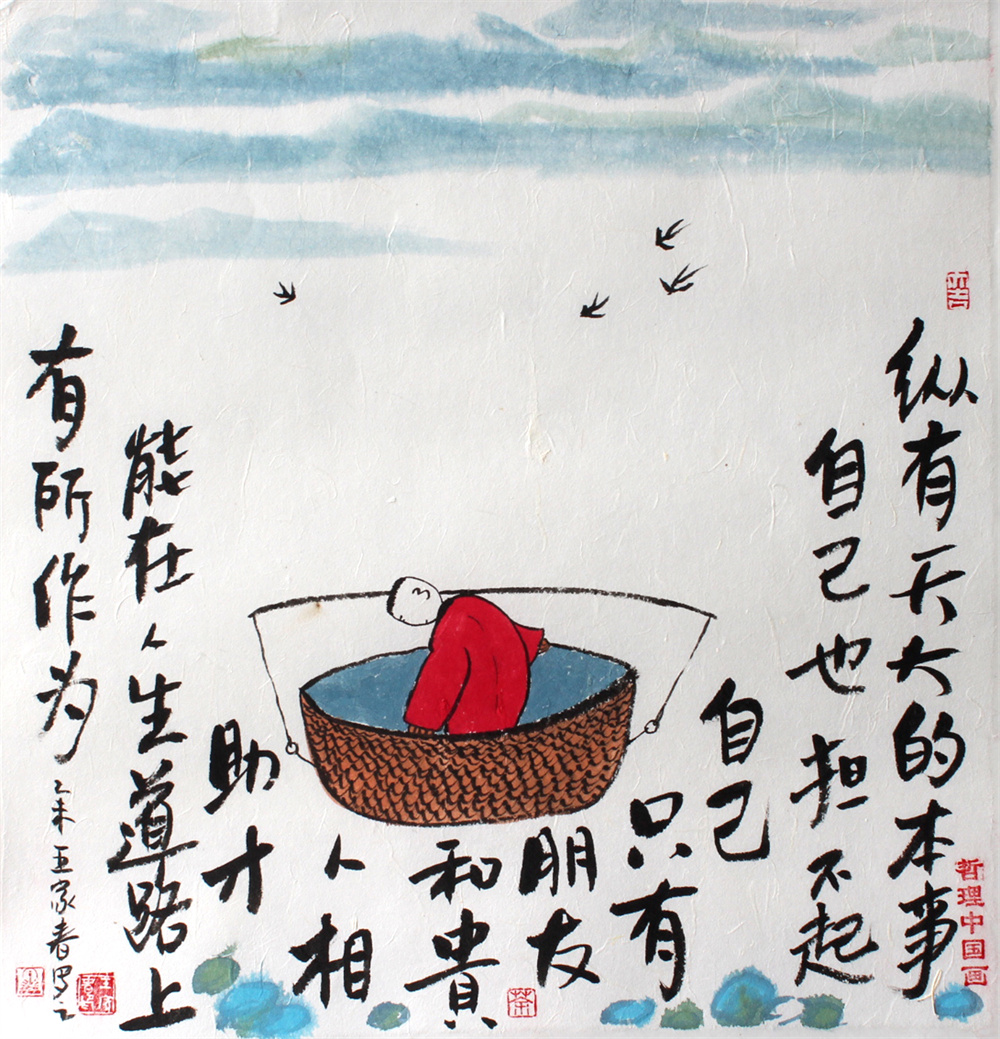 纵有天大的本事
自己也担不起
自己
只有
朋友
和貴
人相
助才
能在人生道路上
有所作为
乙未王家春写之
哲理中国画